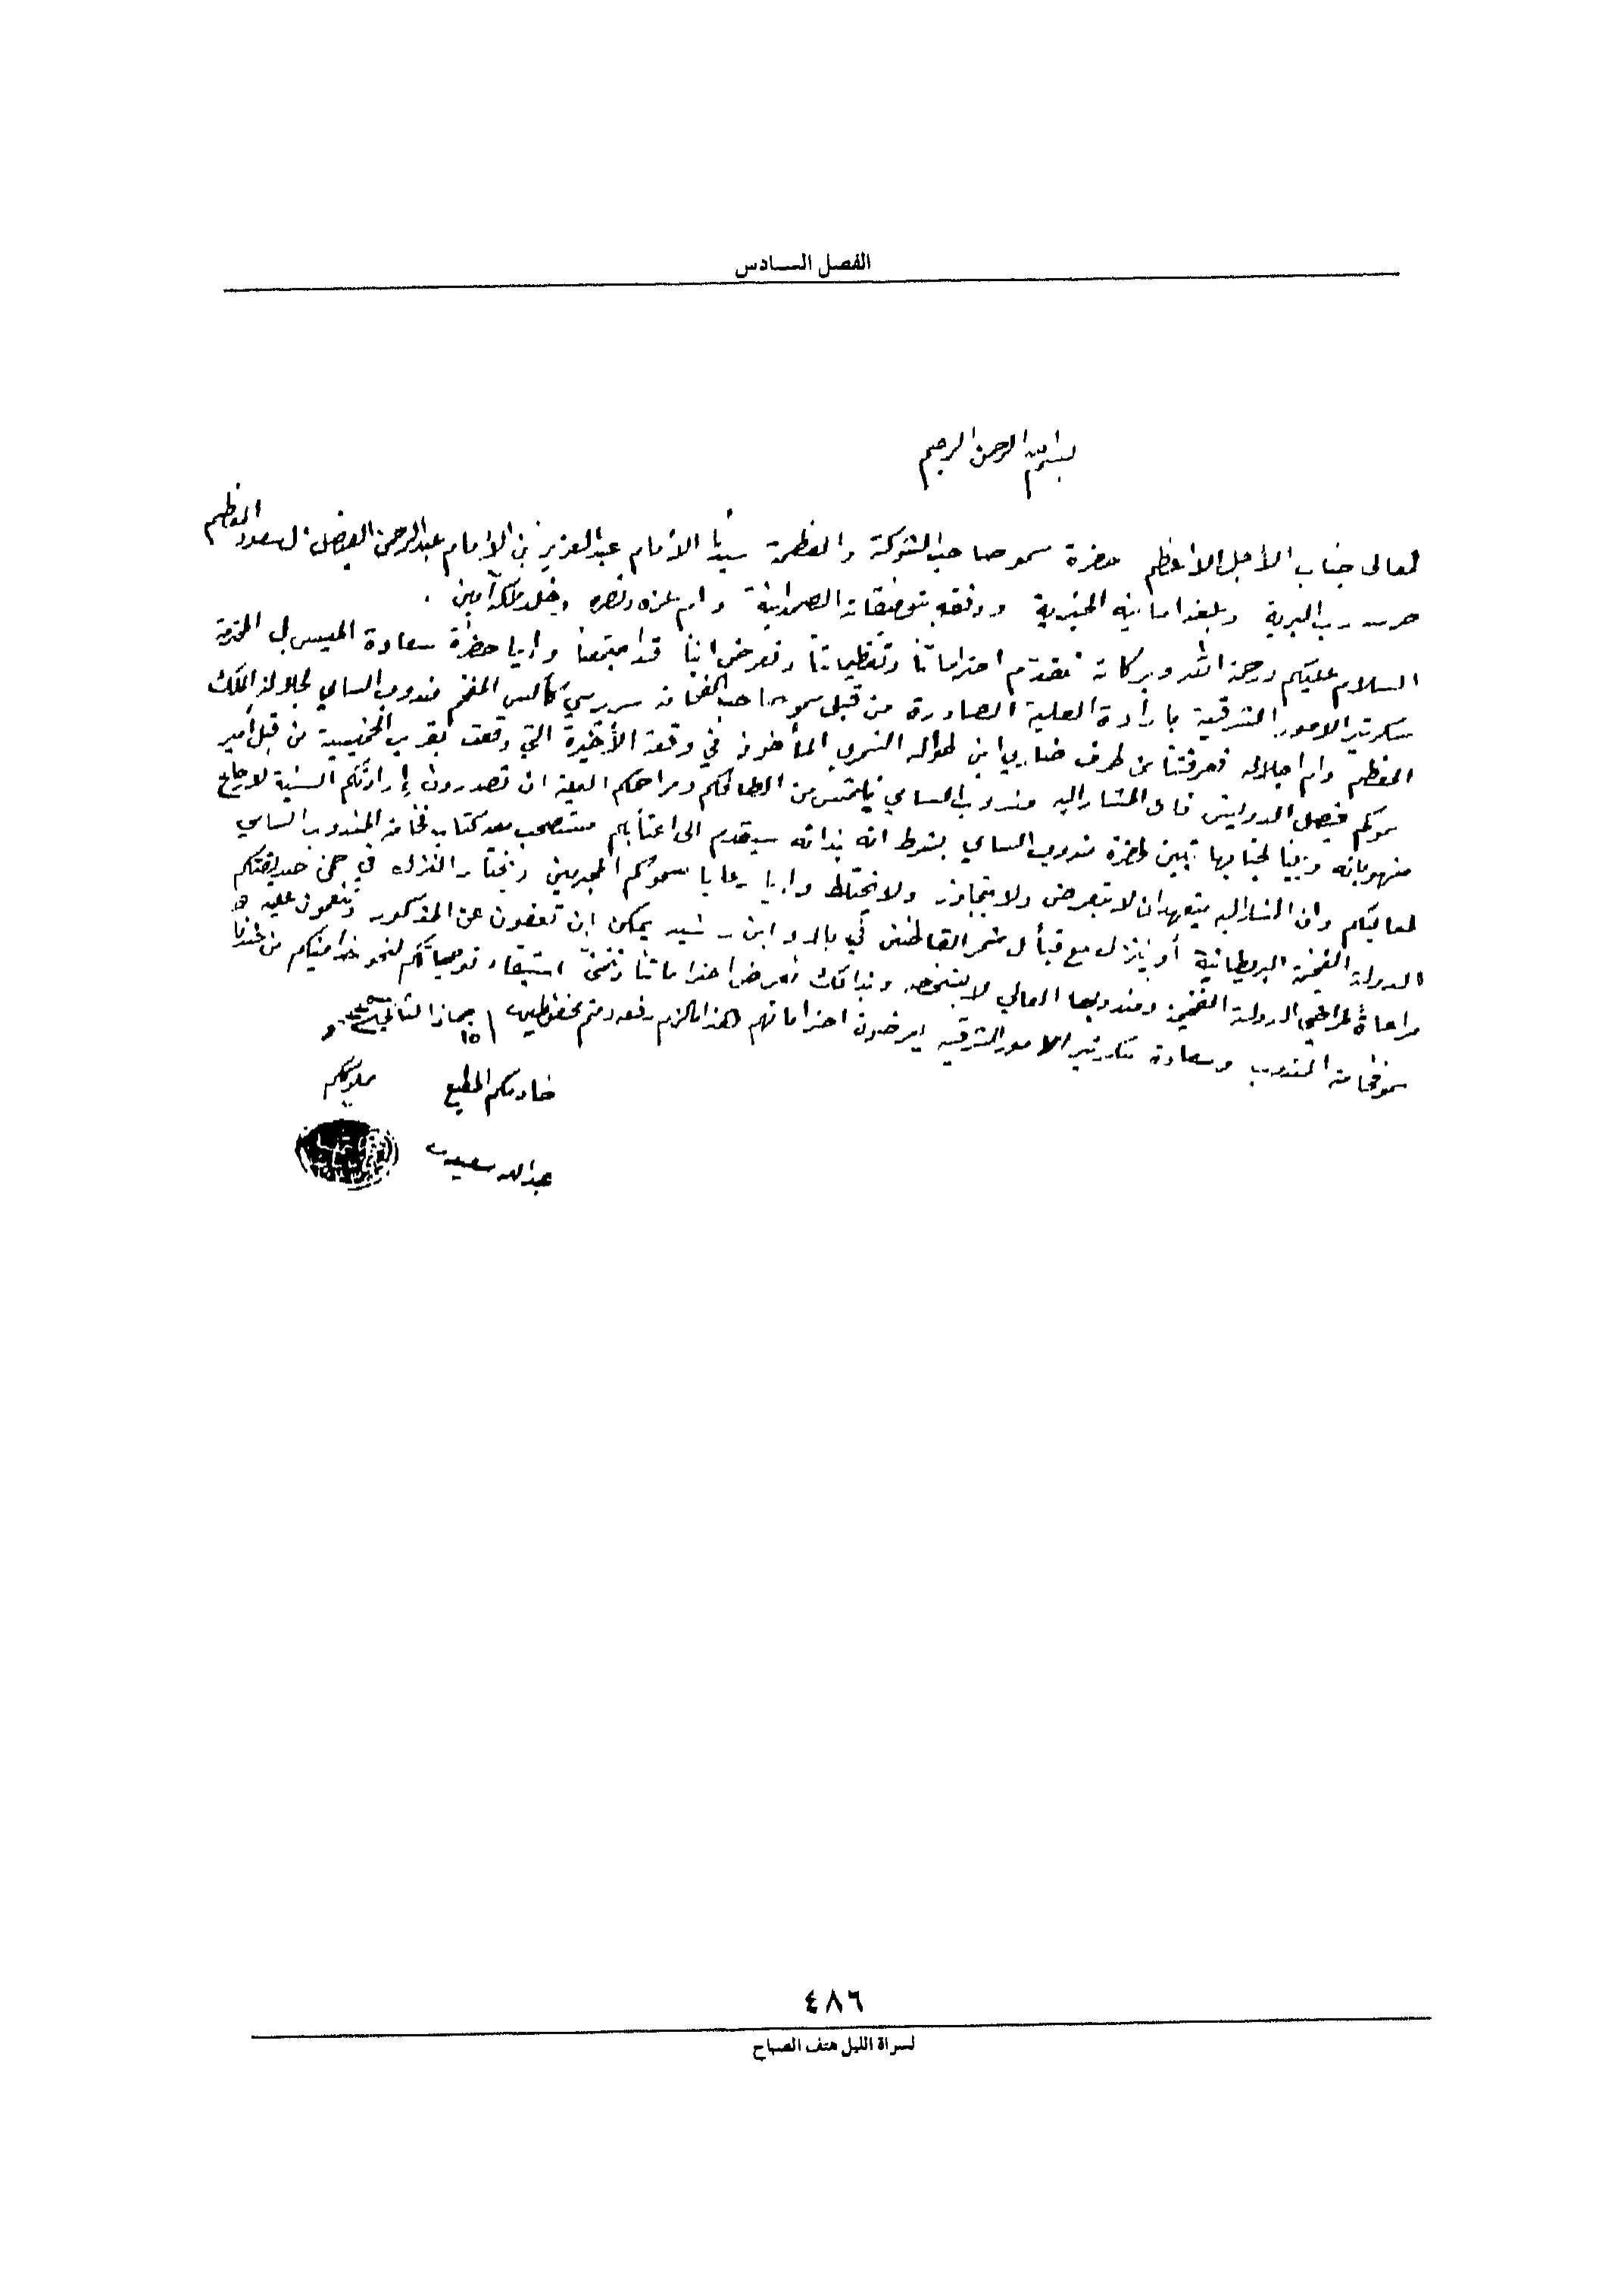 الفصل السادس
بسم الله الرحمن الرحيم
لمعالي جناب الأجل الأعظم حضرة سمو صاحب الشوكة والعظمة سيدنا الامام عبدالعزيز بن الإمام عبدالرحمن الفيصل السعود المعظم
حرسه رب البرية وبلغه امانيه الخيرية ووفقه بتوفيقاته الصمدانية دام عزه ونصره وخلد ملكه آمين .
السلام عليكم ورحمة الله وبركاته نقدم احتراماتنا وتعظيماتنا ونعرض اننا قد اجتمعنا وايا حضرة سعادة الميس بل المحترمة
سكرتير الامور الشرقية بارادة العلية الصادرة من قبل سمو صاحب الفخامة سر برسي كاكس المفخم مندوب السامي لجلالة الملك
المعظم دام اجلاله فعرفتنا عن طرف ضاري ابن طواله الشمري المأخوذ في وقعة الأخيرة التي وقعت بقرب الخميسية من قبل أمير
سموكم فيصل الدويش فان المشار اليه مندوب السامي يلتمس من الطافكم ومراحمكم العلية ان تصدرون إرادتكم السنية لارجاع
منهوباته وبينا لجنابها تبين لحضرة مندوب السامي بشرط انه بذاته سيقدم الى اعتابكم مستصحب معه كتاب فخامة المندوب السامي
لمعاليكم وان المشار اليه يتعهد ان لا يتعرض ولا يتجاوز ولا يختلط وايا رعايا سموكم المجرمين ويختار النزول في حمى صديقتكم
الدولة الفخيمة البريطانية أو ينزل مع قبائل شمر القاطنين في بلاد ابن رشيد يمكن ان تعفون عن المذكور وتنعمون عليه
مراعاة لمراضي الدولة الفخيمة ومندوبها العالي لا بشخصه وبذالك نعرض احتراماتنا ونتمنى استبقاء توجهاتكم لنحو خداميكم من عندنا
سمو فخامة المندوب وسعادة سكرتير الامور الشرقيه يعرضون احتراماتهم هذا مالزم رفعه ودمتم محفوظين ١٥ جماد الثاني
خادمكم المطيع مملوككم
عبدالله سعيد
٤٨٦
لسراة الليل هتف الصباح